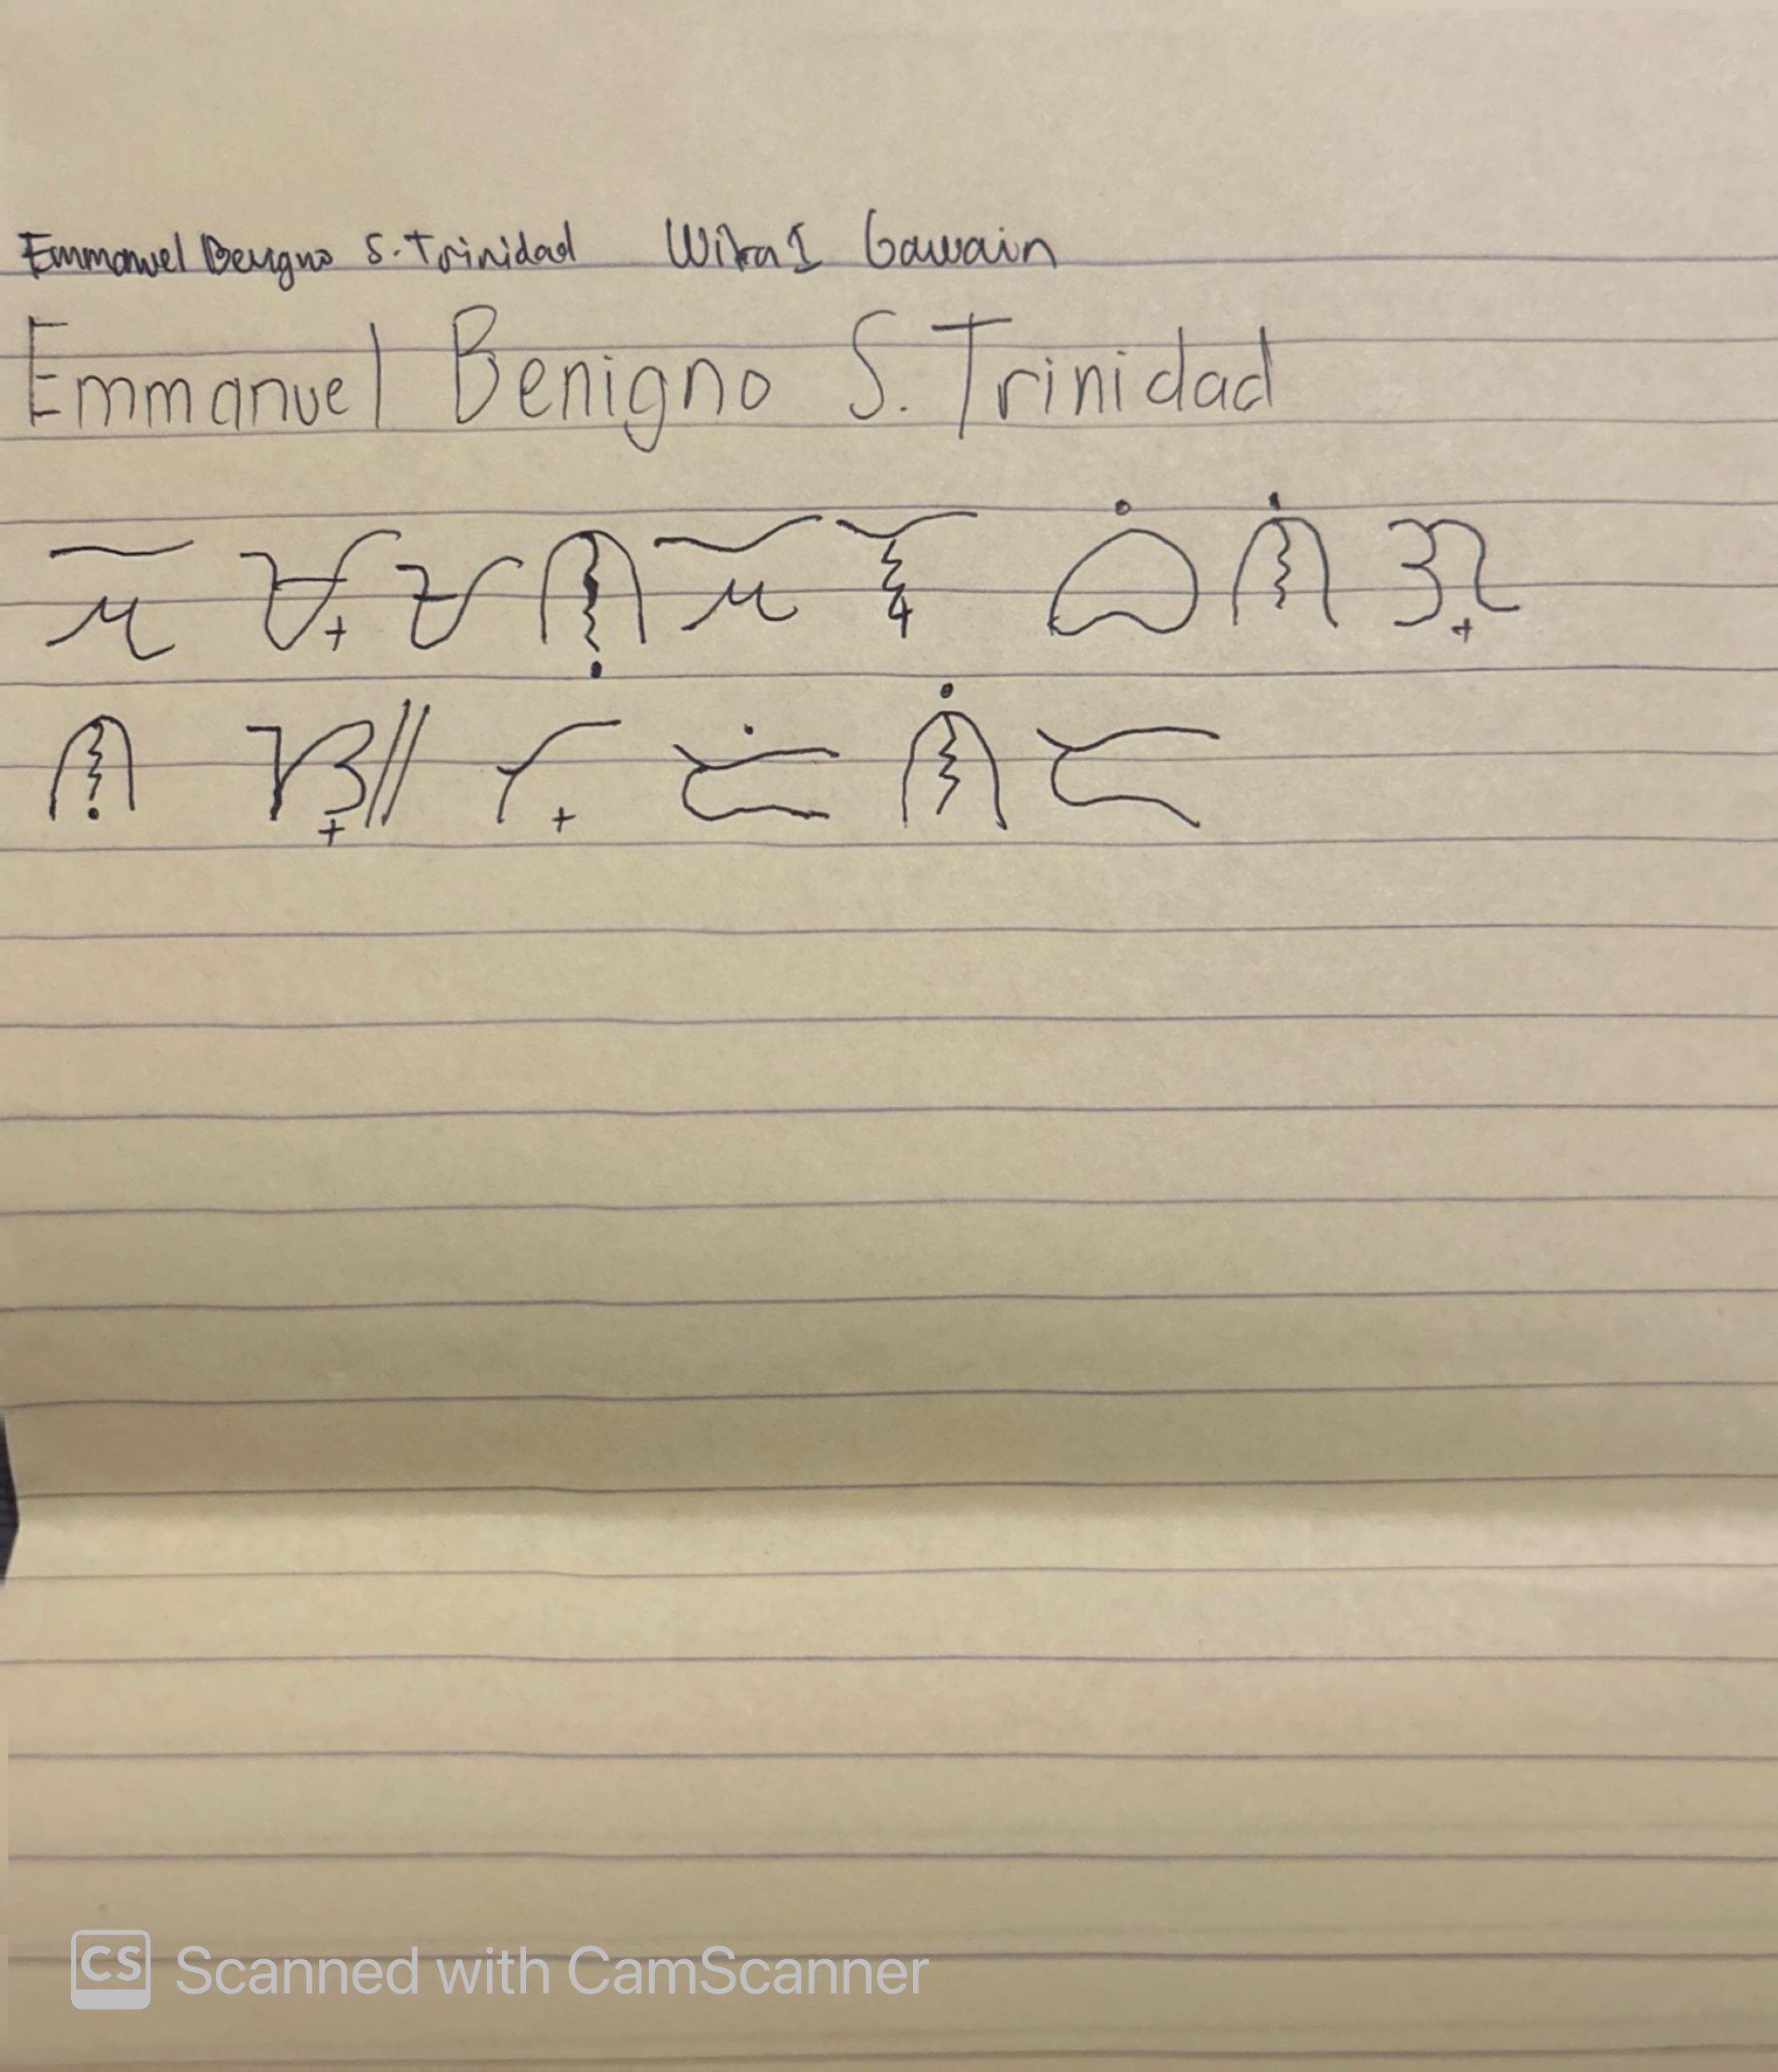 Emmanuel Benigno S. Trinidad Wika 1 Gawain
Emmanuel Benigno S. Trinidad
ᜁ ᜋ᜔ ᜋ ᜈᜓ ᜁ ᜎ᜔ ᜊᜒ ᜈᜒ ᜄ᜔
ᜈᜓ ᜐ᜔ ᜶ ᜆ᜔ ᜇᜒ ᜈᜒ ᜇ
CS Scanned with CamScanner